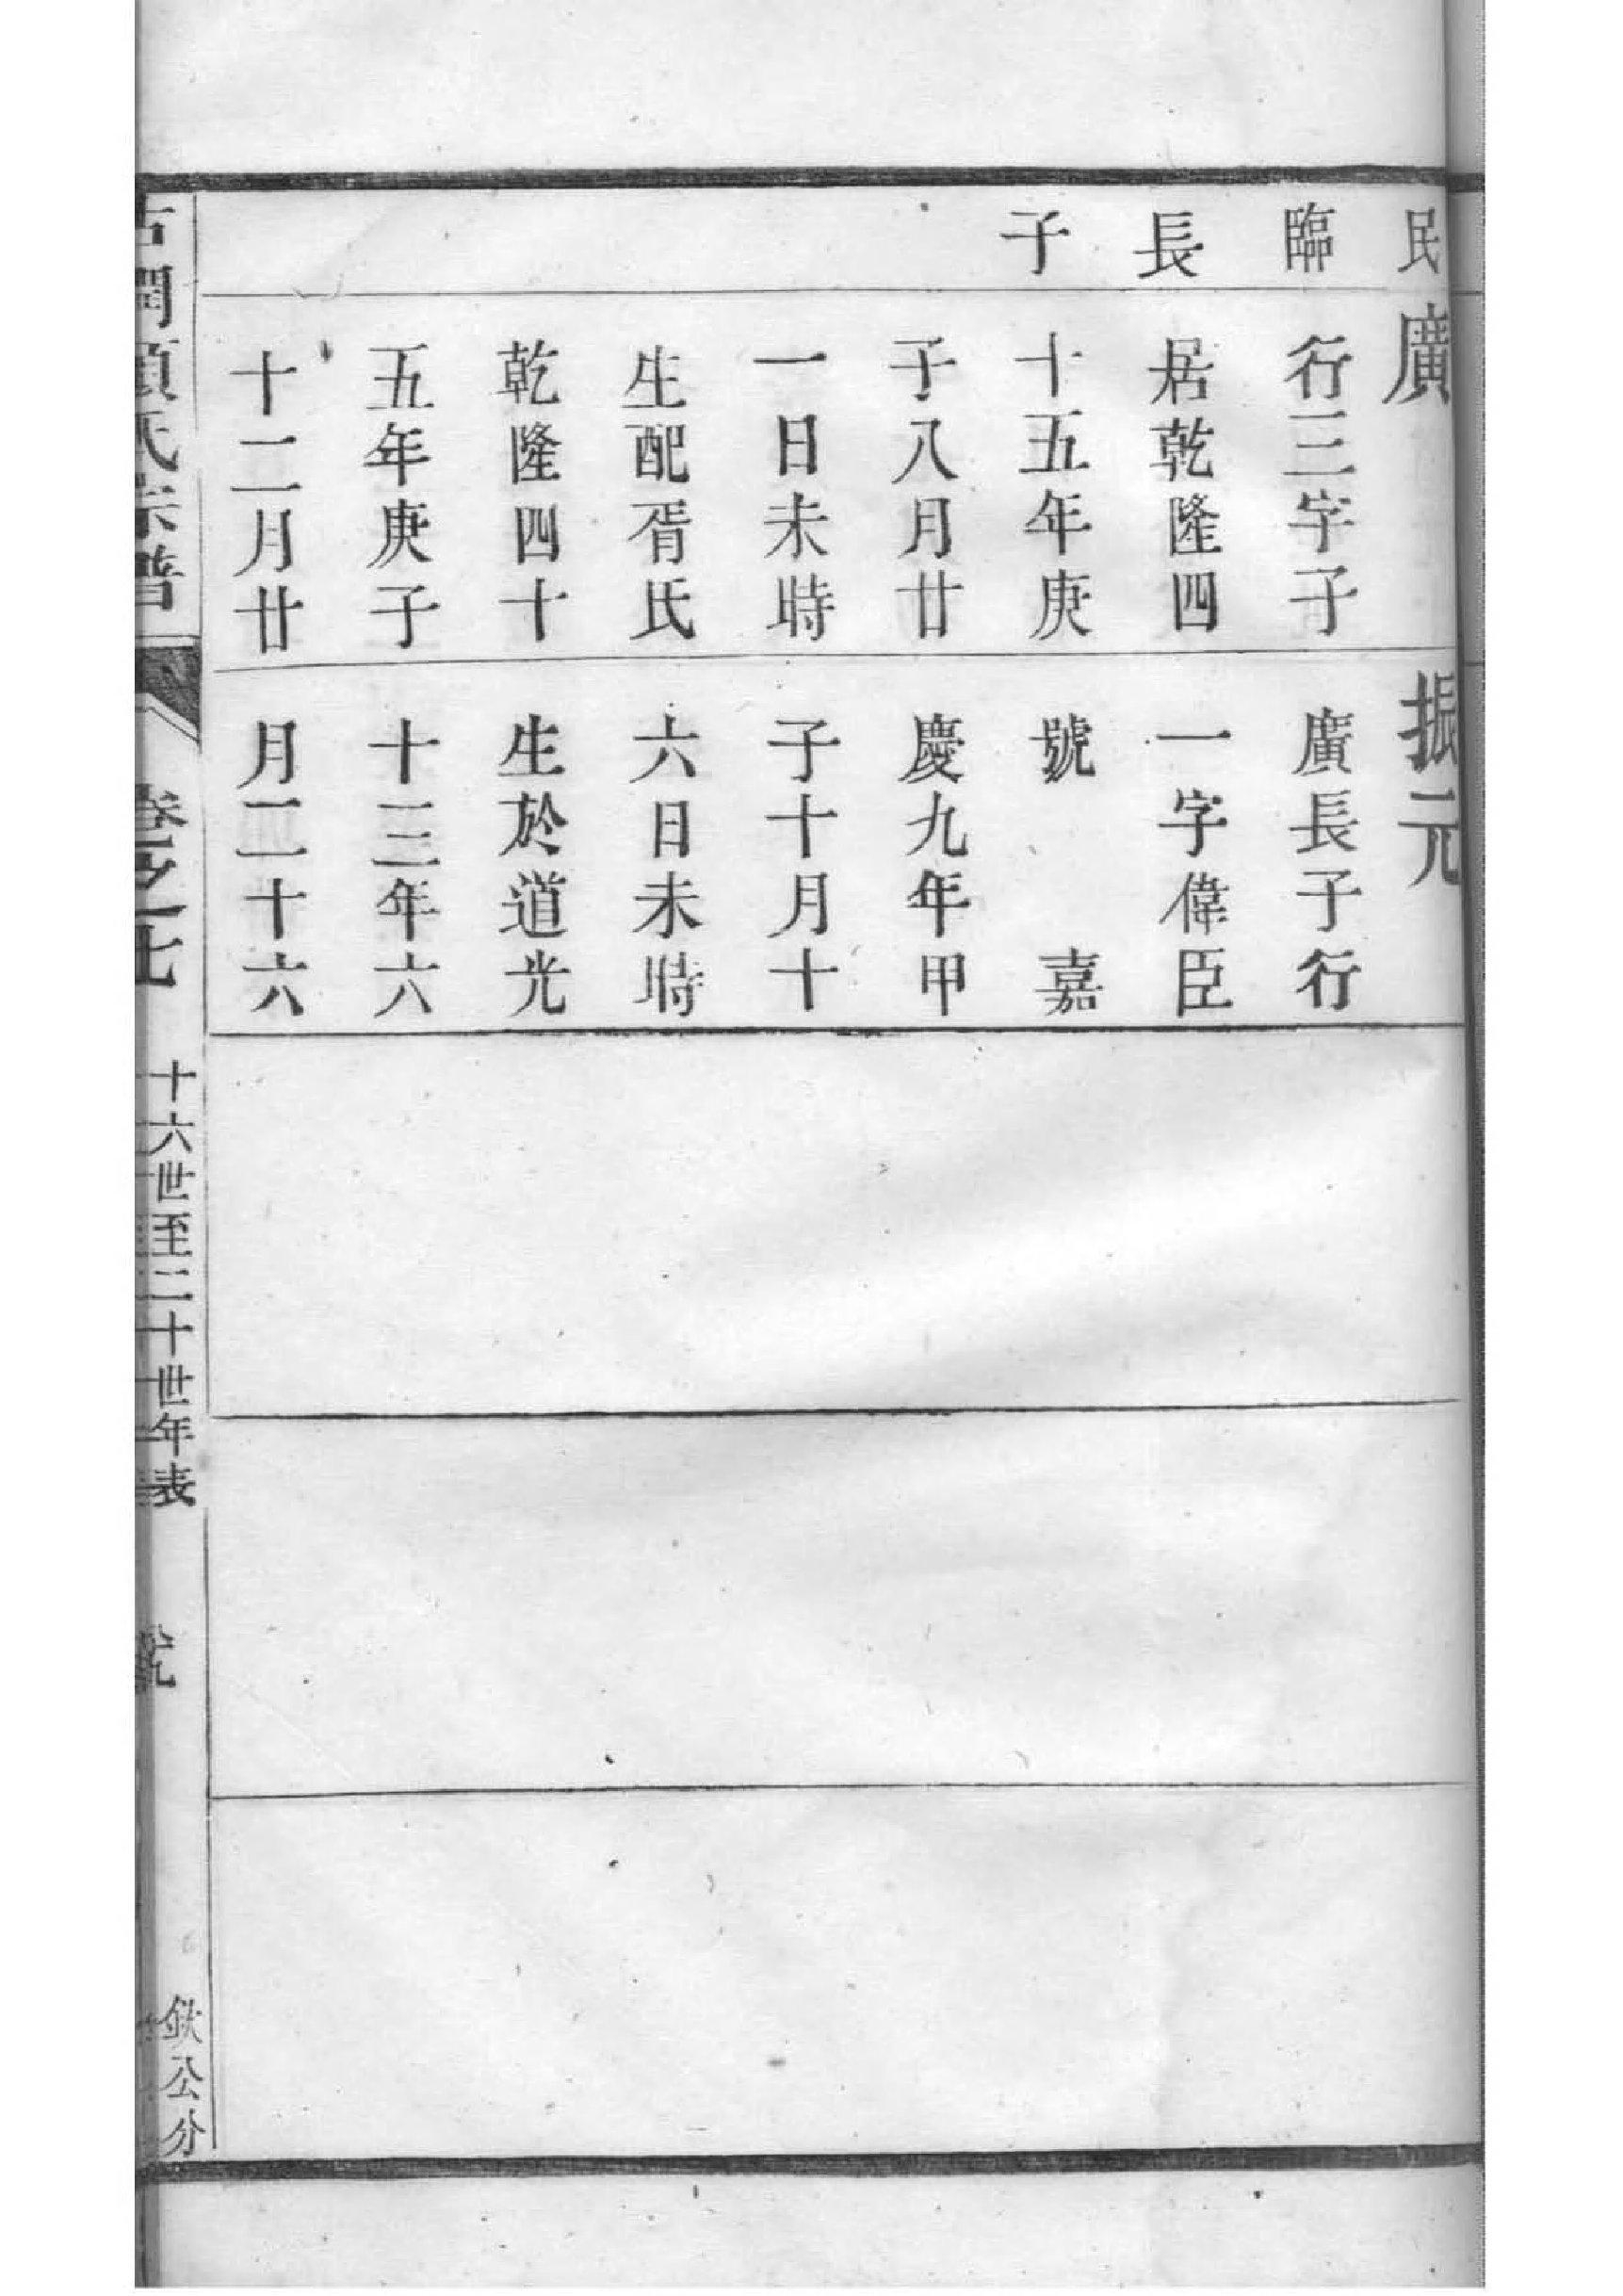 民
臨
長
子
廣
行三字子
居乾隆四
十五年庚
子八月廿
一日未時
生配胥氏
乾隆四十
五年庚子
十二月廿
振元
廣長子行
一字偉臣
號　嘉
慶九年甲
子十月十
六日未時
生於道光
十三年六
月二十六
古潤 氏宗譜
卷之七
十六世至二十世年表
欽公分